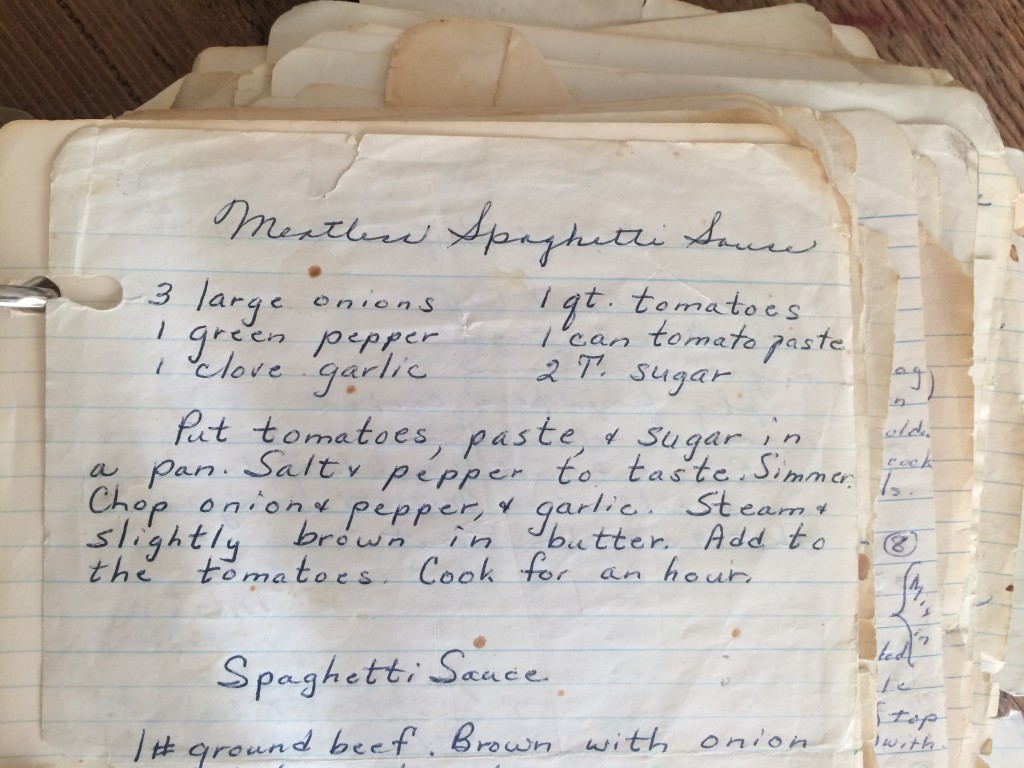 Meatless Spaghetti Sauce
3 large onions 1 qt. tomatoes
1 green pepper 1 can tomato paste
1 clove garlic 2 T. sugar
Put tomatoes, paste, & sugar in
a pan. Salt & pepper to taste. Simmer.
Chop onions, pepper, & garlic. Steam &
slightly brown in butter. Add to
the tomatoes. Cook for an hour.
Spaghetti Sauce
1# ground beef. Brown with onion
ag)
cook
ls.
8
in
1c
top
with